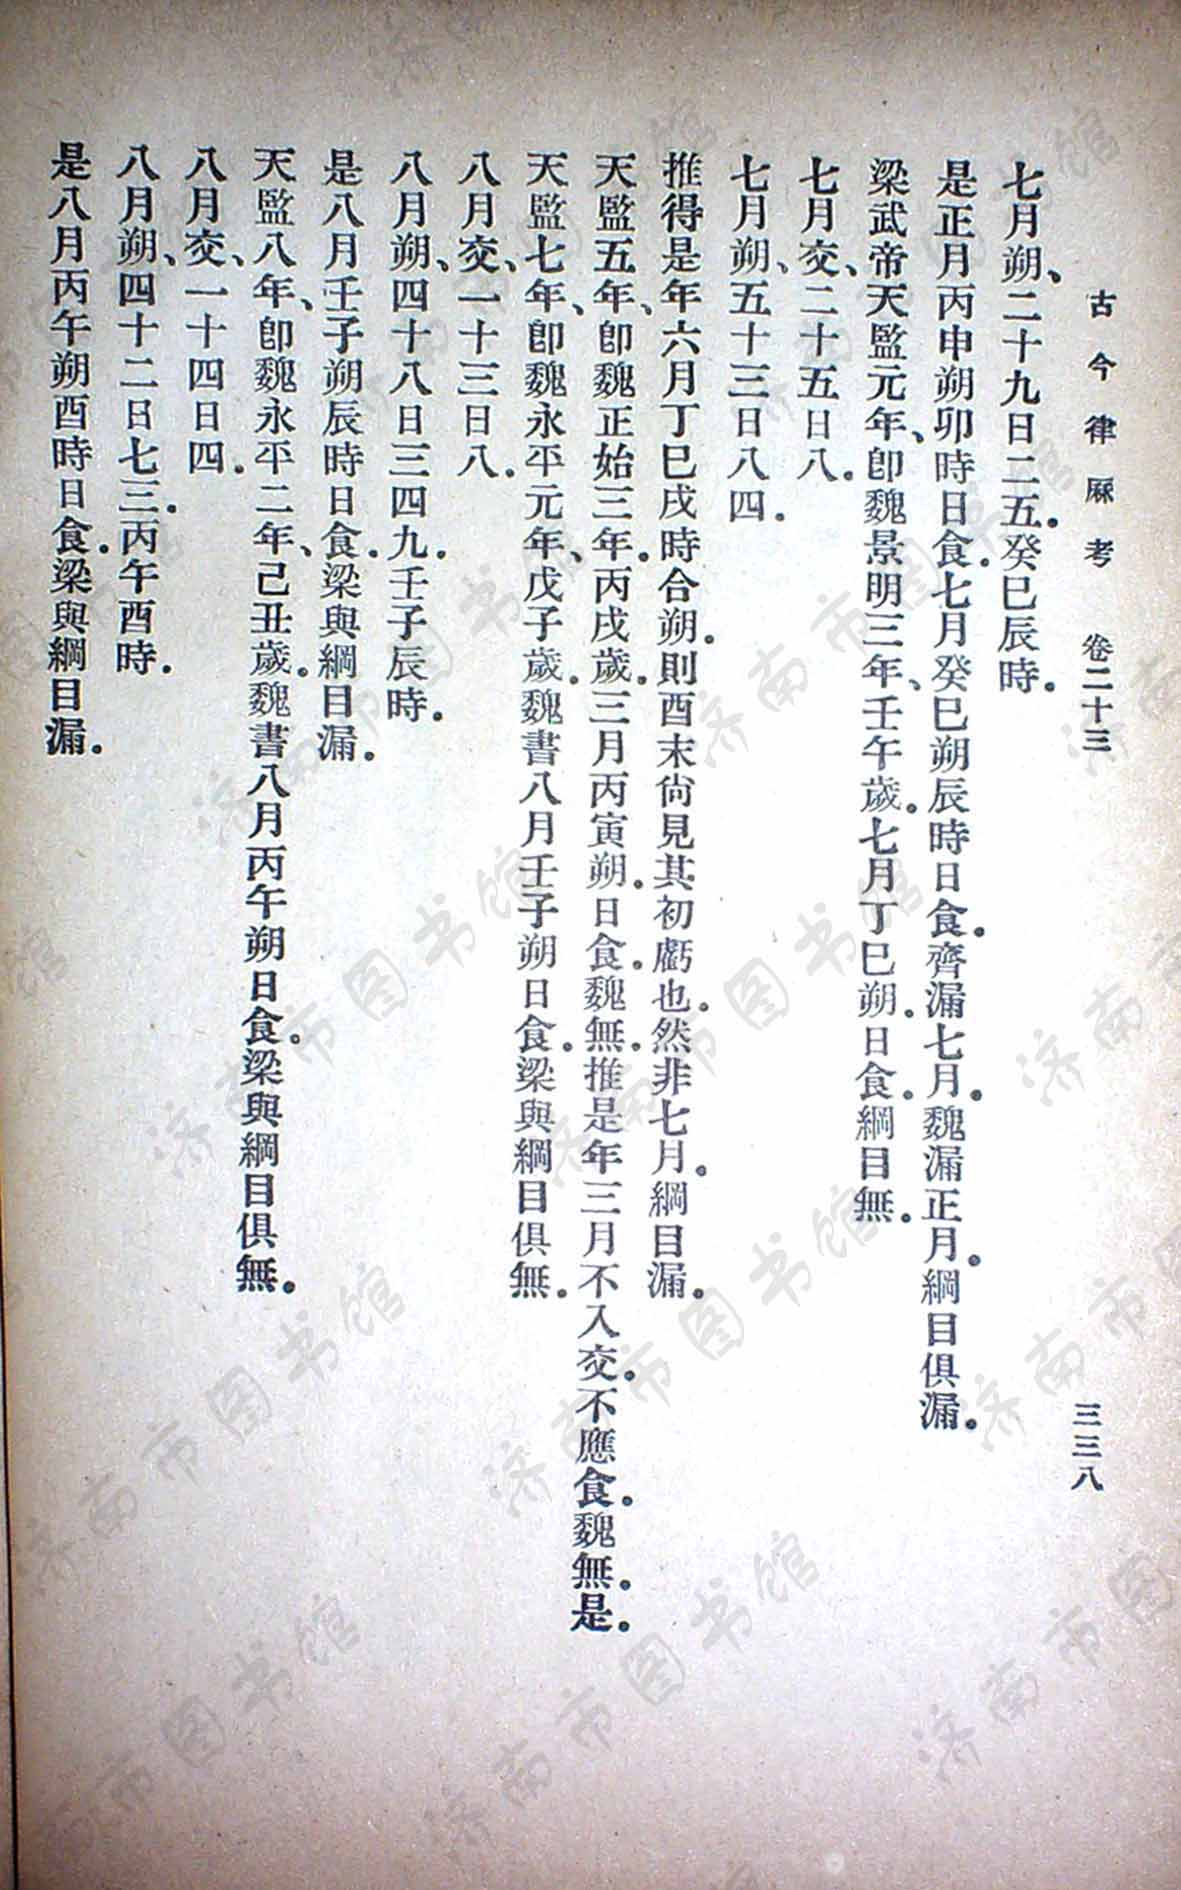 古今律厤考 卷二十三 三三八
七月朔、二十九日二五。癸巳辰時。
是正月丙申朔卯時日食。七月癸巳朔辰時日食。齊漏七月。魏漏正月。綱目俱漏。
梁武帝天監元年、卽魏景明三年、壬午歲。七月丁巳朔。日食。綱目無。
七月交、二十五日八。
七月朔、五十三日八四。
推得是年六月丁巳戌時合朔。則酉末尙見其初虧也。然非七月。綱目漏。
天監五年、卽魏正始三年。丙戌歲。三月丙寅朔。日食。魏無。推是年三月不入交。不應食。魏無。是。
天監七年、卽魏永平元年、戊子歲。魏書八月壬子朔日食。梁與綱目俱無。
八月交、一十三日八。
八月朔、四十八日三四九。壬子辰時。
是八月壬子朔辰時日食。梁與綱目漏。
天監八年、卽魏永平二年、己丑歲。魏書八月丙午朔日食。梁與綱目俱無。
八月交、一十四日四。
八月朔、四十二日七三。丙午酉時。
是八月丙午朔酉時日食。梁與綱目漏。
济南市图书馆